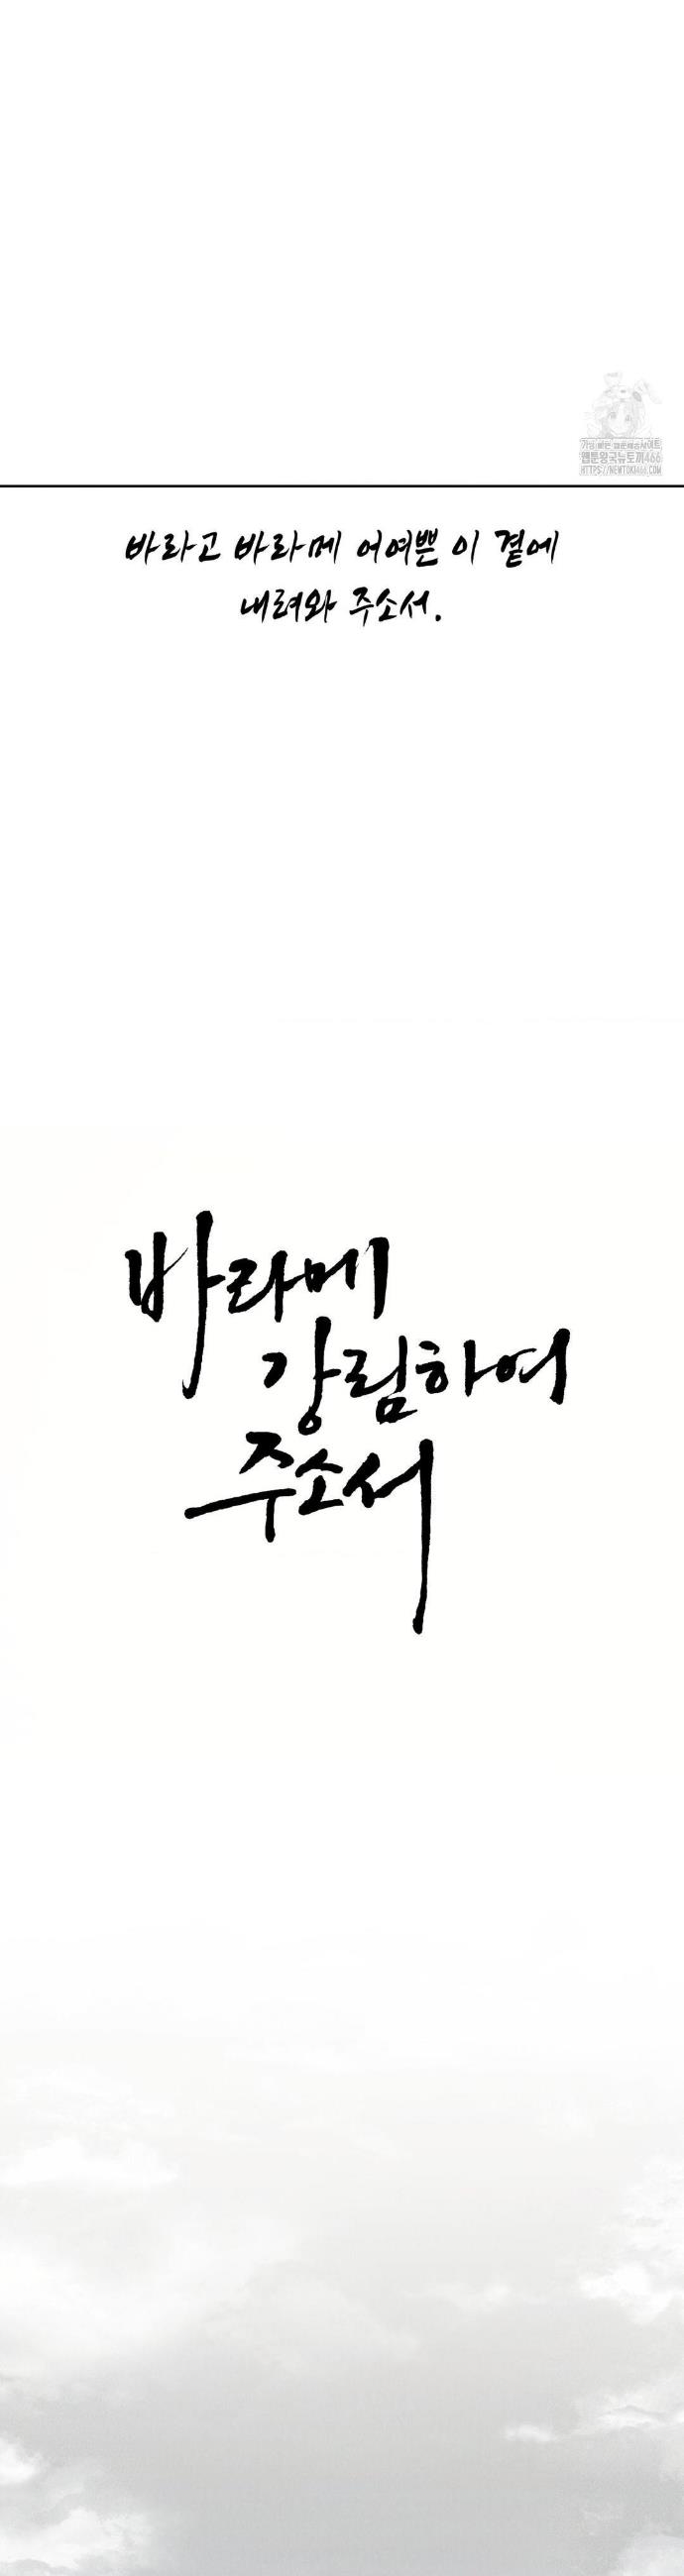 가장 빠른 웹툰제공사이트
웹툰왕국뉴토끼466
HTTPS://NEWTOKI466.COM
바라고 바라메 어여쁜 이 곁에
내려와 주소서.
바라메
강림하여
주소서